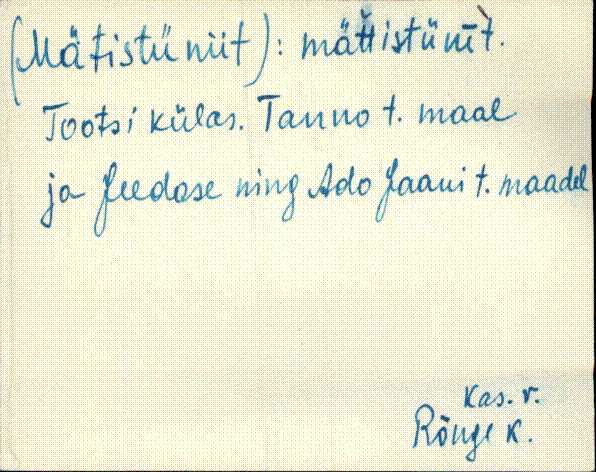 (Mätistü niit): mättistünīt̀.
Tootsi külas. Tanno t. maal
ja Feedose ning Ado Jaani t. maadel
Kas. v.
Rõuge k.